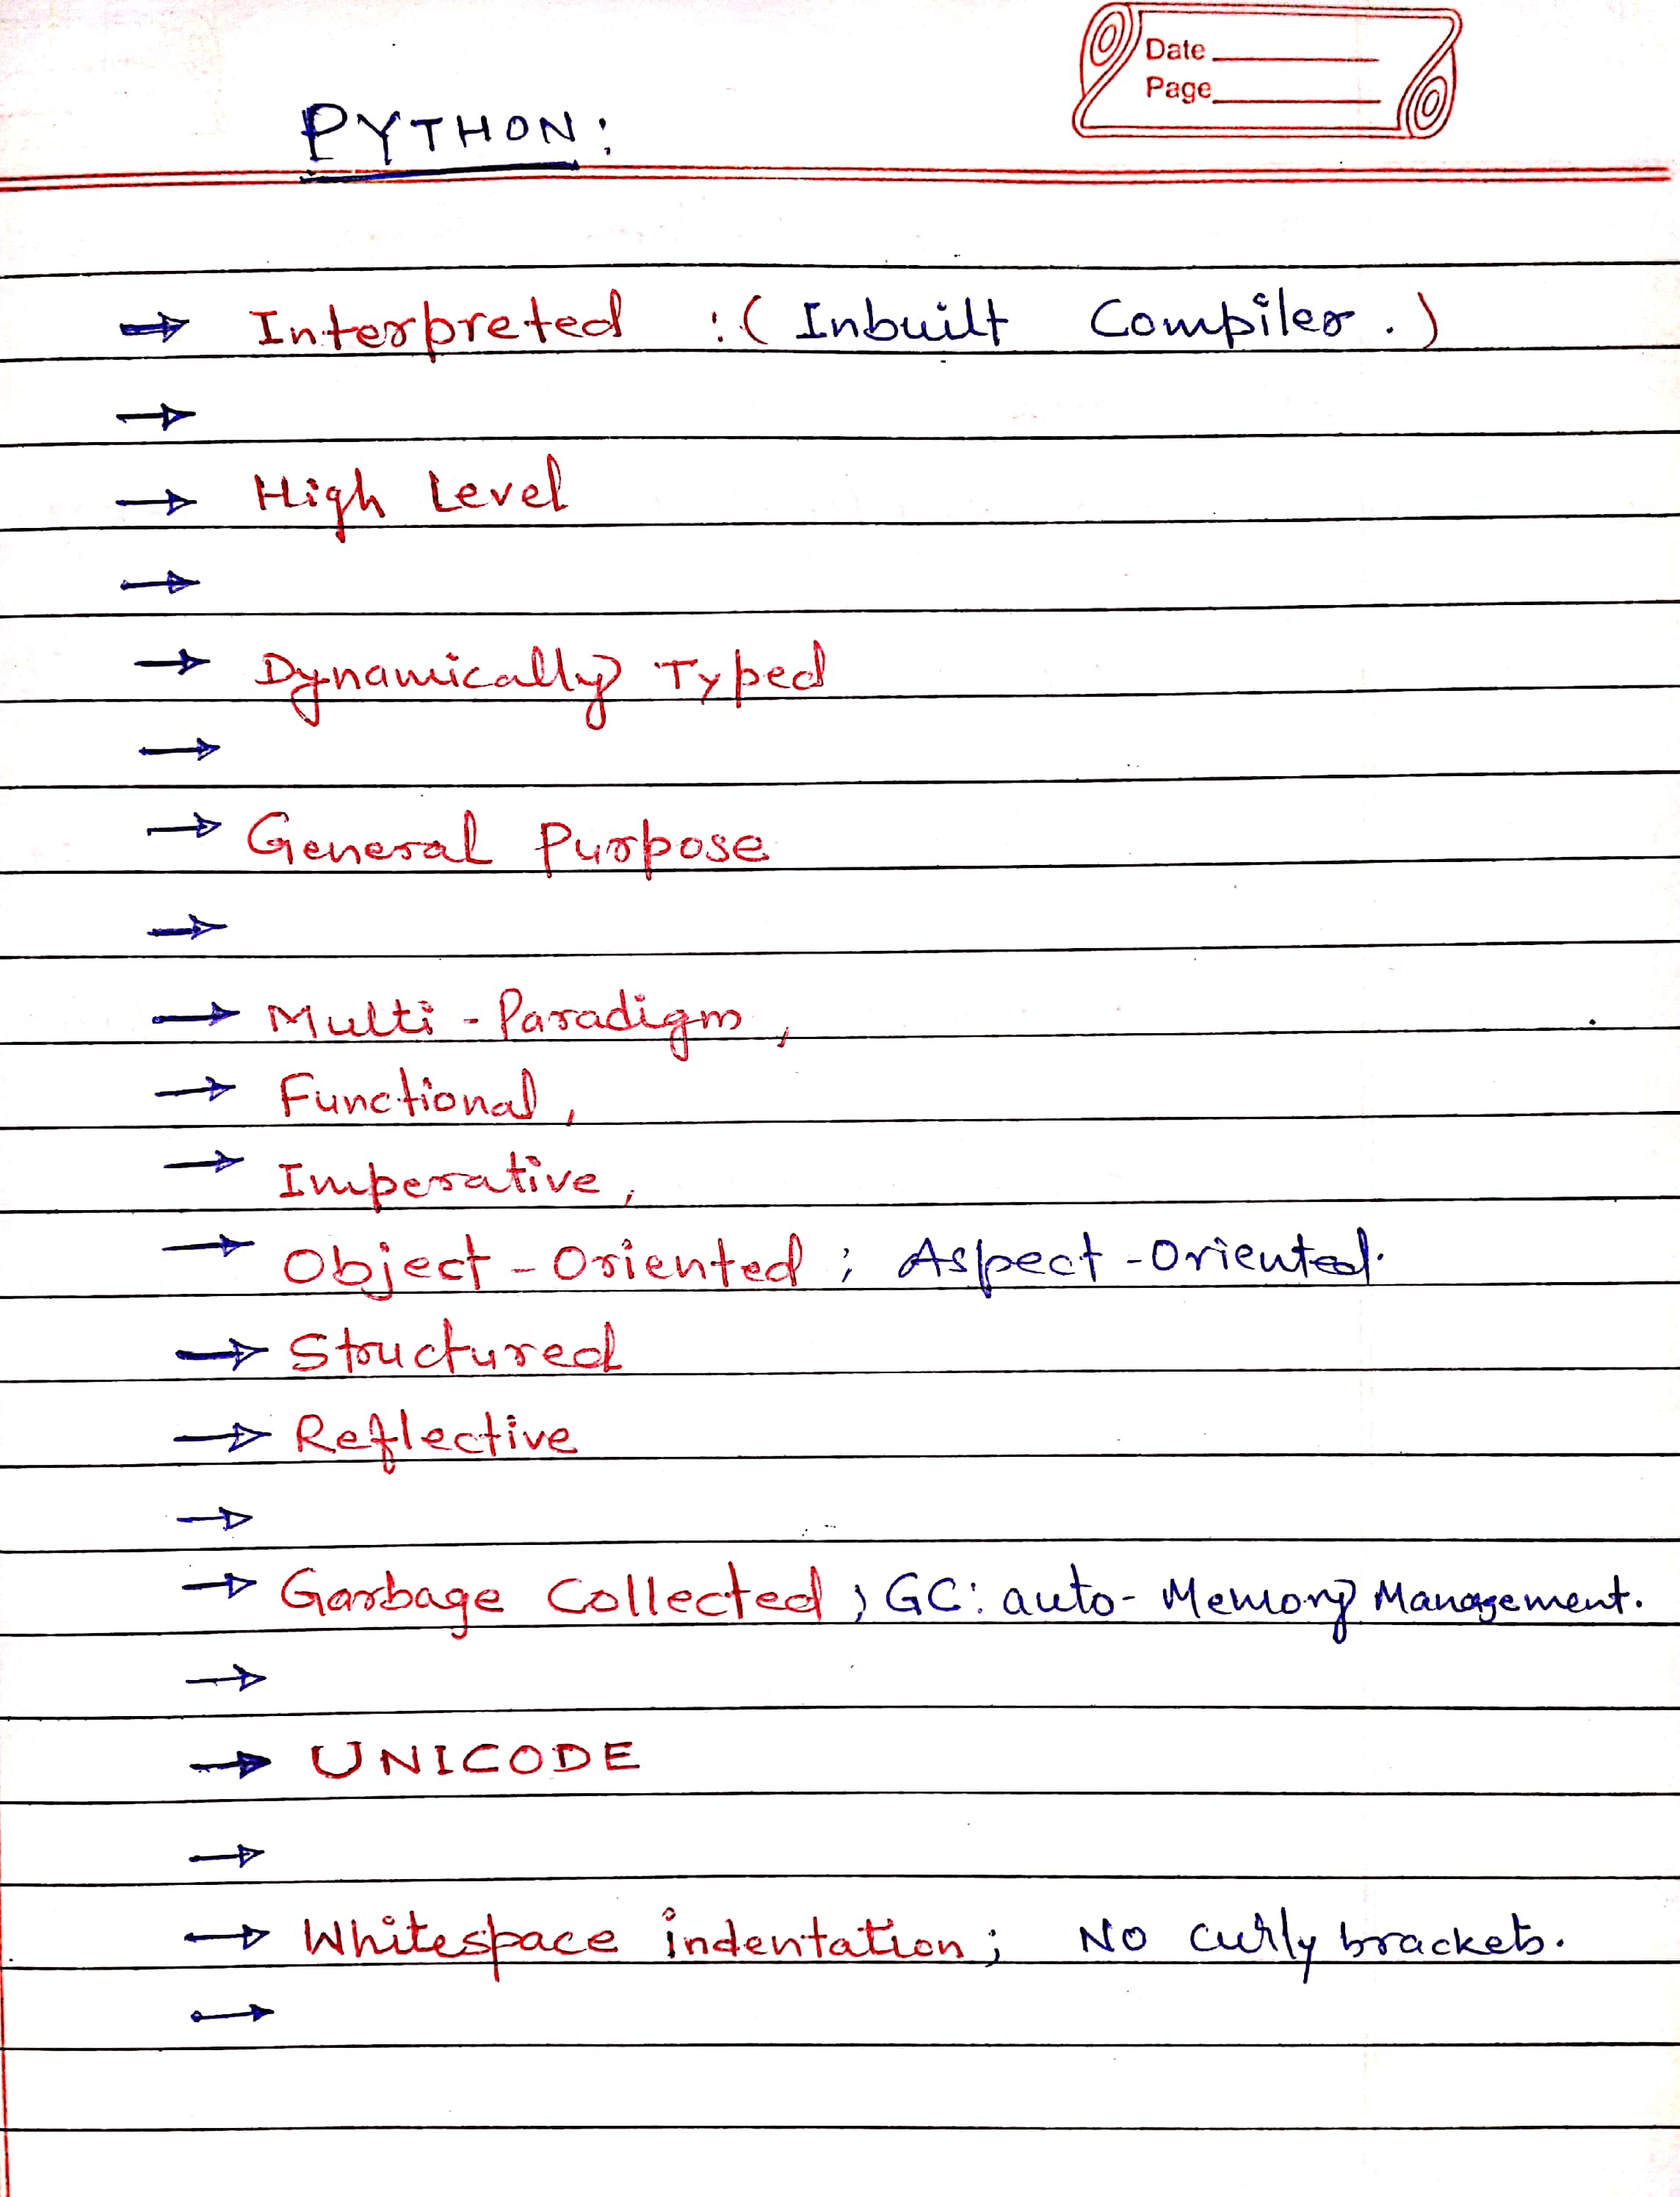 Date
Page
PYTHON:
→ Interpreted :( Inbuilt Compiler.)
→
→ High Level
→
→ Dynamically Typed
→
→ General Purpose
→
→ Multi-Paradigm,
→ Functional,
→ Imperative,
→ Object-Oriented; Aspect-Oriented.
→ Structured
→ Reflective
→
→ Garbage Collected; GC: auto-Memory Management.
→
→ UNICODE
→
→ Whitespace indentation; No curly brackets.
→